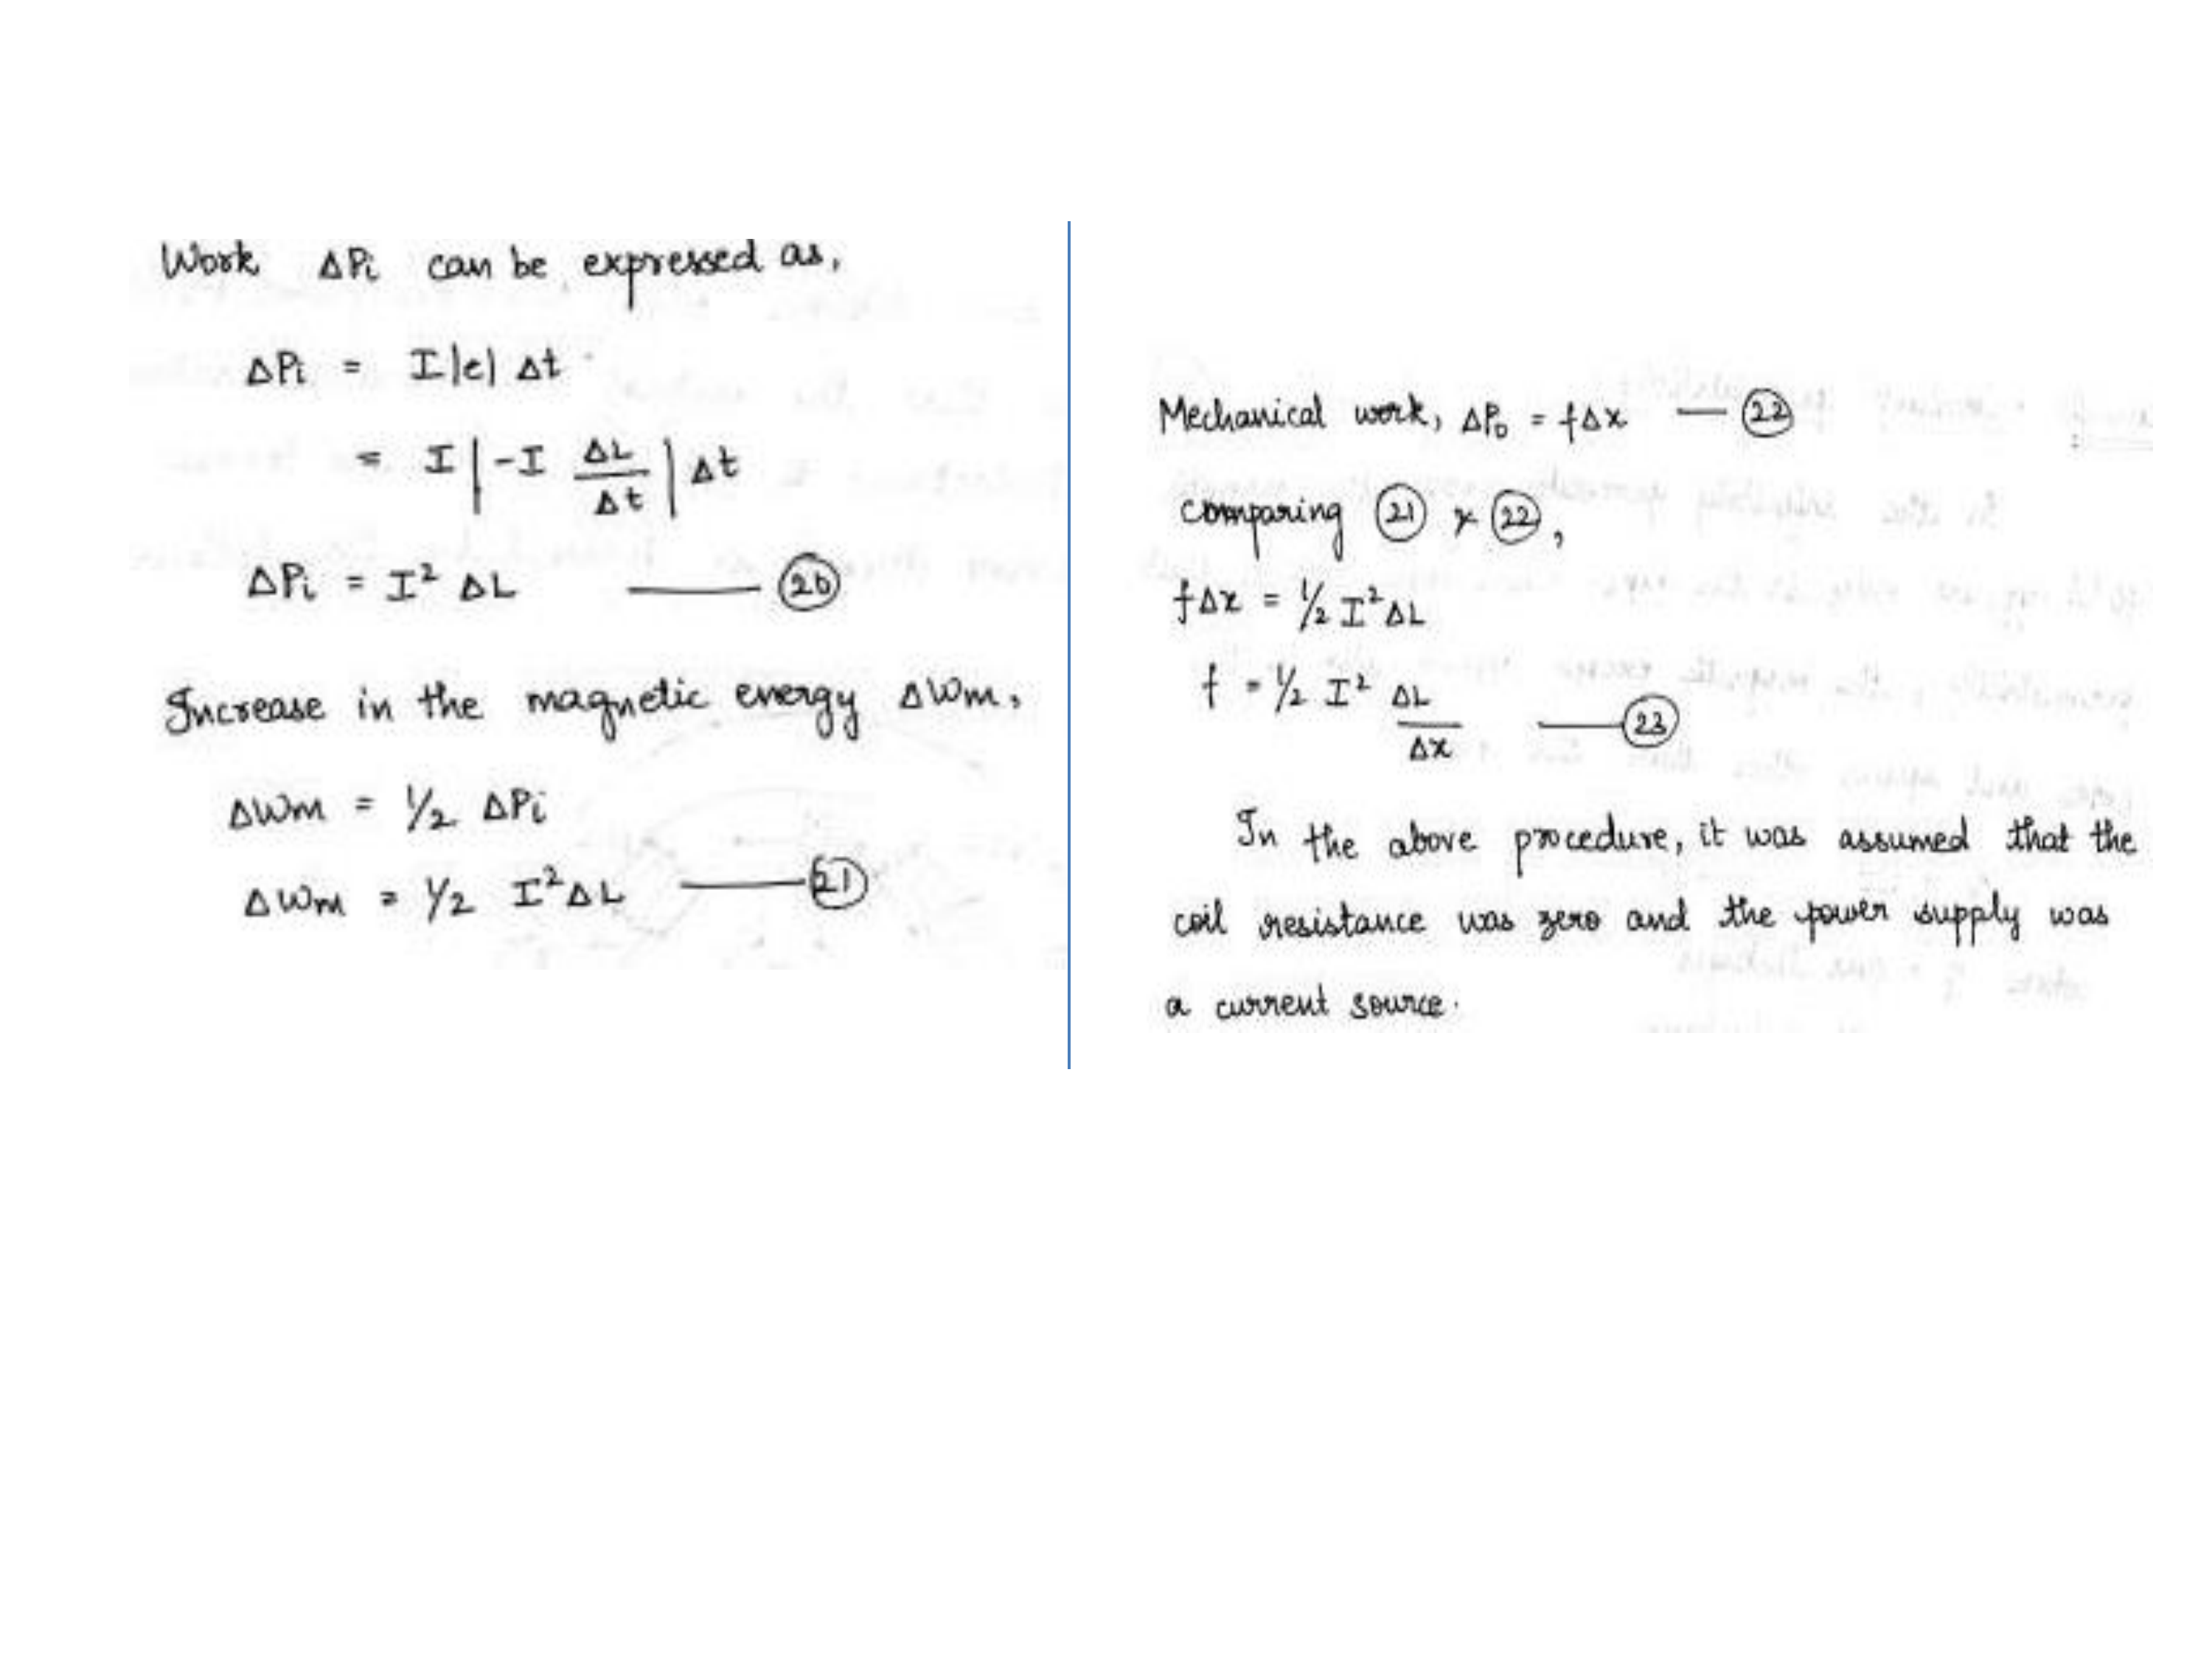 Work ΔPi can be expressed as,
ΔPi = I|e| Δt
= I | -I ΔL/Δt | Δt
ΔPi = I² ΔL —— 20
Increase in the magnetic energy ΔWm,
ΔWm = 1/2 ΔPi
ΔWm = 1/2 I² ΔL —— 21
Mechanical work, ΔPo = fΔx — 22
comparing 21 & 22,
fΔx = 1/2 I² ΔL
f = 1/2 I² ΔL/Δx —— 23
In the above procedure, it was assumed that the
coil resistance was zero and the power supply was
a current source.